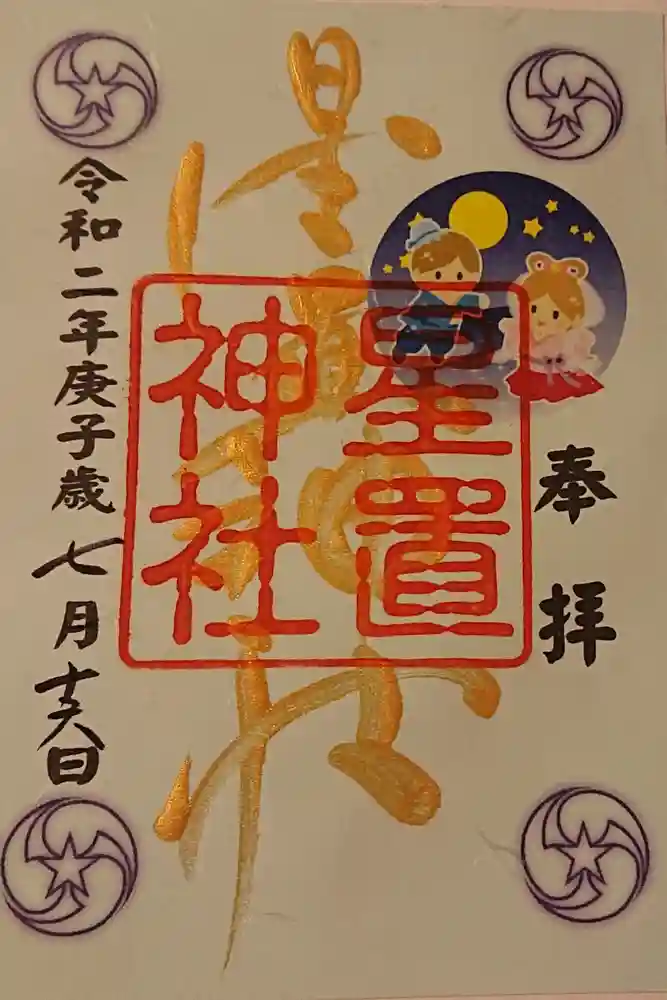 奉拝
星
星置
神社
令和二年庚子歳七月十六日